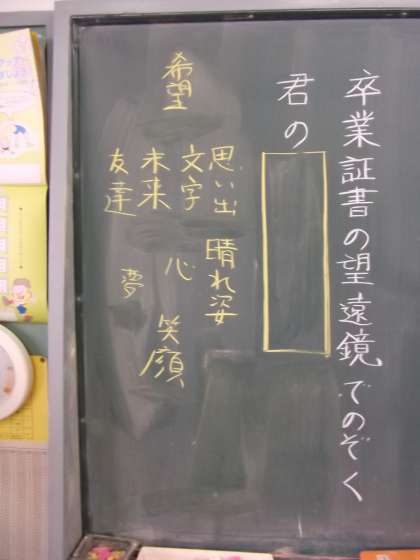 卒業証書の望遠鏡でのぞく
君の
思い出
晴れ姿
文字
心
笑顔
希望
未来
夢
友達